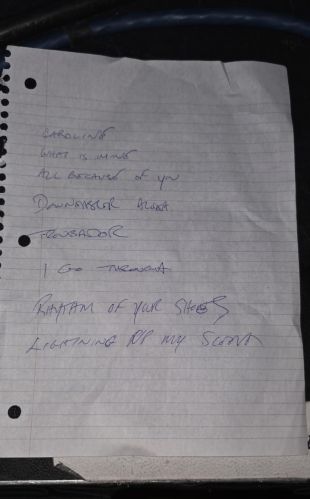 CAROLINE
WHAT IS MINE
ALL BECAUSE OF YOU
DOWNEASTER ALEXA
TROUBADOR
I GO THROUGH
RHYTHM OF YOUR SHOES
LIGHTNING MY